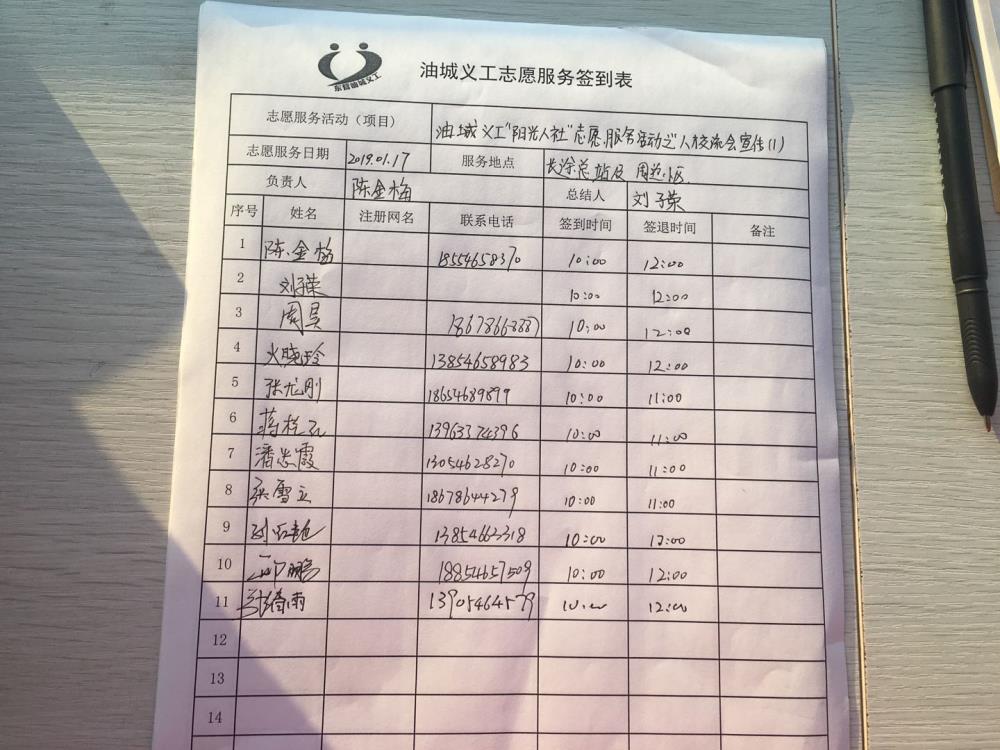 东营油城义工
油城义工志愿服务签到表
志愿服务活动（项目） 油城义工"阳光人社"志愿服务活动之"人才交流会宣传(1)
志愿服务日期 2019.01.17 服务地点 长途总站及 小区
负责人 陈金梅 总结人 刘子荣
序号 姓名 注册网名 联系电话 签到时间 签退时间 备注
1 陈金梅 18554658370 10:00 12:00
2 刘子荣 10:00 12:00
3 周昊 18678668887 10:00 12:00
4 火晓玲 13854658983 10:00 12:00
5 张龙刚 18654689899 10:00 11:00
6 蒋 13963374396 10:00 11:00
7 潘志霞 13054628270 10:00 11:00
8 雪立 18678644279 10:00 11:00
9 13854663318 10:00 12:00
10 邱鹏 18854657509 10:00 12:00
11 张春雨 13905464579 10:00 12:00
12
13
14